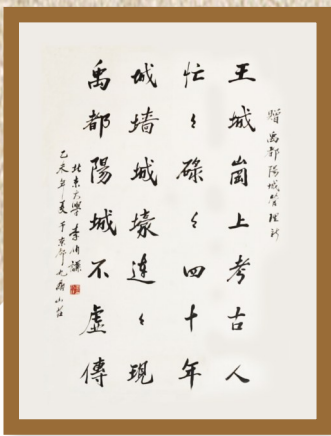 赠禹都阳城管理所
王城崗上考古人
忙々碌々四十年
城墙城壕連々現
禹都陽城不虚傳
北京大學李伯謙
己亥年夏于京郊九福山莊